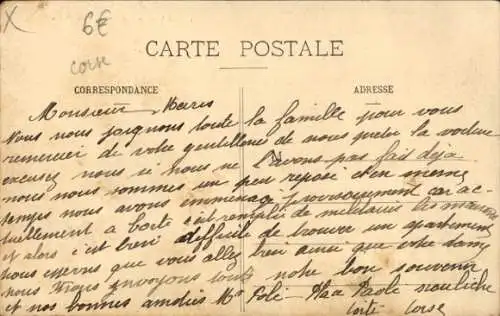 X
6€
corse
CARTE POSTALE
CORRESPONDANCE
ADRESSE
Monsieur
Nous nous joignons toute la famille pour vous
remercier de votre gentillesse de nous preter la voiture
excusez nous si nous ne l'avons pas fait déja
nous nous sommes un peu reposé et en meme
temps nous avons immenagé car ac-
tuellement a c'est remplie de militaires les maisons
et alors c'est bien difficile de trouver un apartement
nous esperns que vous allez bien ainsi que votre dame
nous vous envoyons tous notre bon souvenir
et nos bonnes Mr Poli
Corse